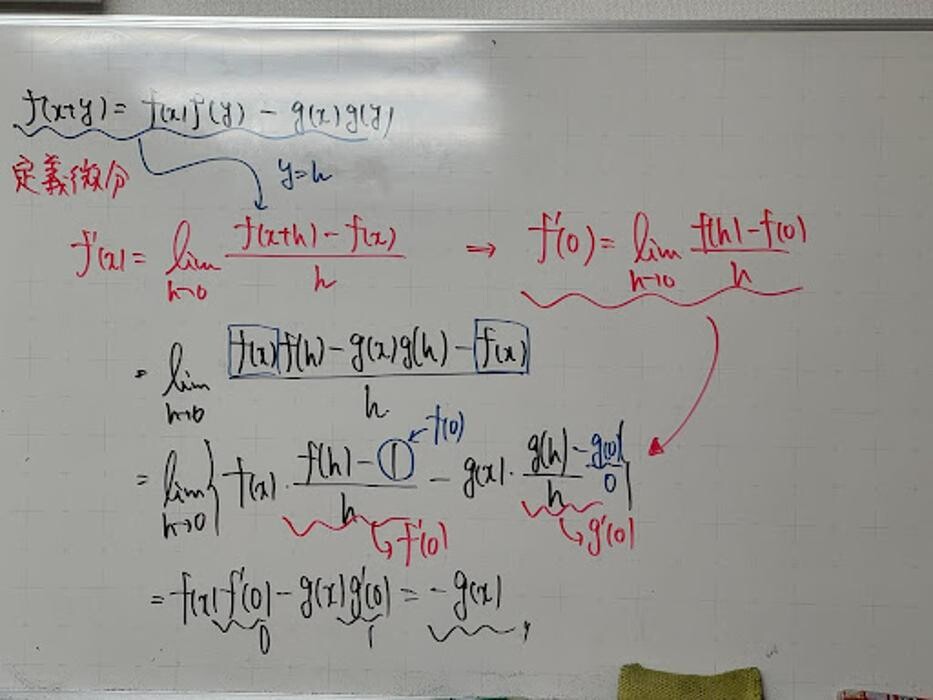 f(x+y) = f(x)f(y) - g(x)g(y)
定義微分
y=h
f'(x) = lim h→0 f(x+h) - f(x) / h ⇒ f'(0) = lim h→0 f(h) - f(0) / h
= lim h→0 f(x)f(h) - g(x)g(h) - f(x) / h
f(0)
= lim h→0 { f(x)・f(h) - 1 / h - g(x)・g(h) - g(0) / h }
0
f'(0) g'(0)
= f(x)f'(0) - g(x)g'(0) = -g(x)
0 1